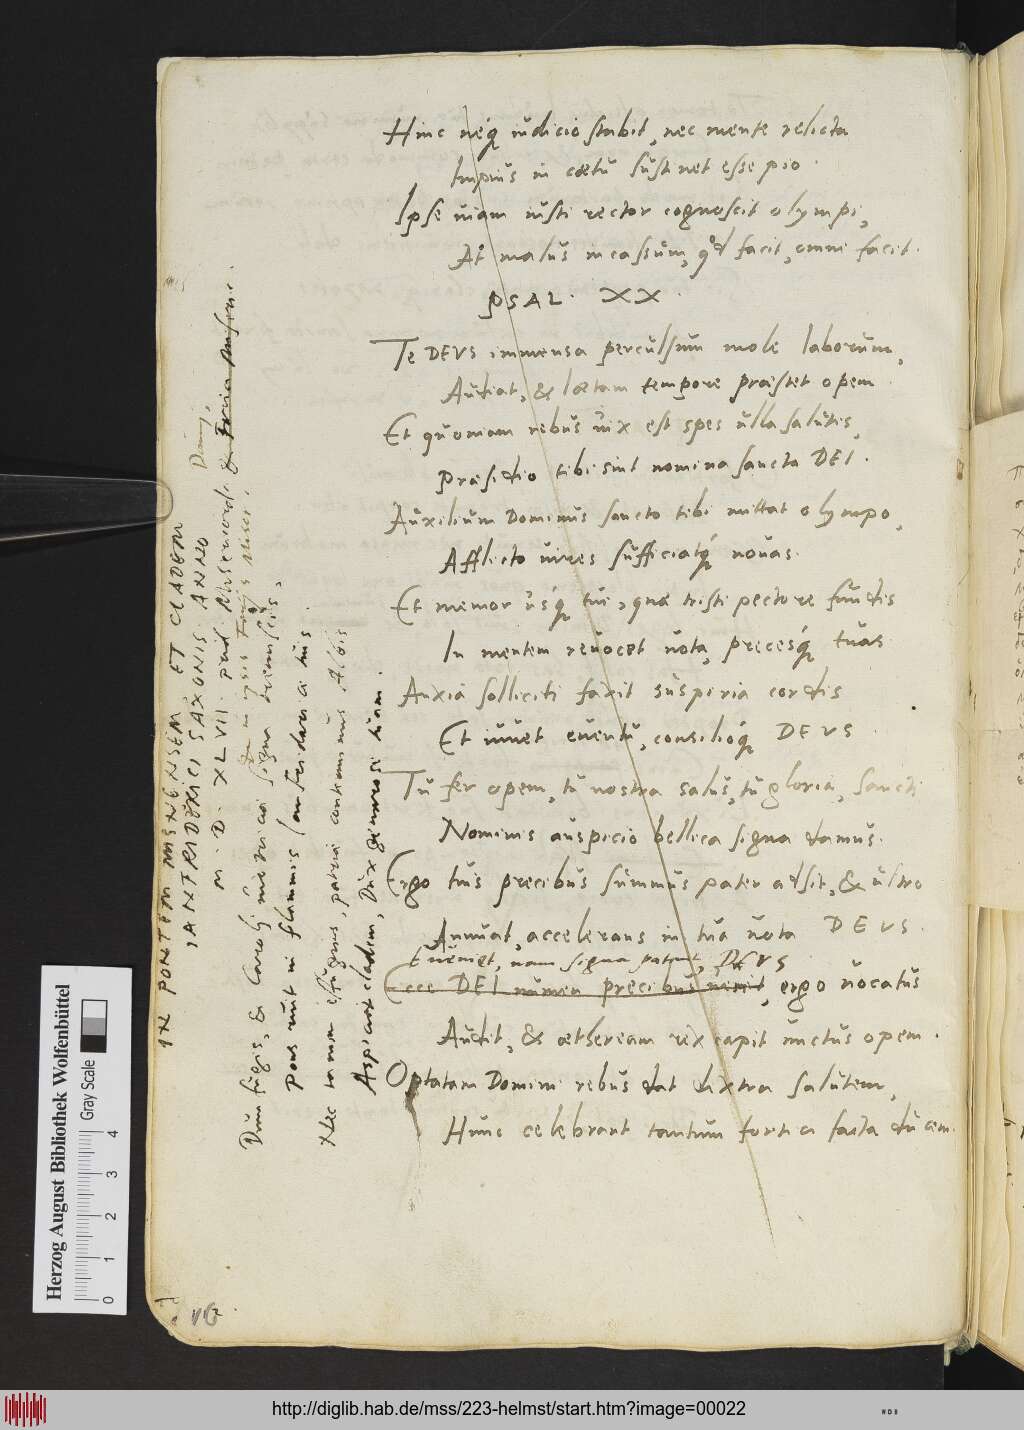 Hinc neq́ iudicio stabit, nec mente relicta
Impius in cœtu sustinet esse pio.
Ipse uiam iusti rector cognoscit olympi,
At malus incassum, qd facit, omne facit.
PSAL. XX.
Te DEUS immensa perculsum mole laborum,
Audiat, & lætam tempore præstet opem.
Et quoniam rebus uix est spes ulla salutis,
Præsidio tibi sint nomina sancta DEI.
Auxilium Dominus sancto tibi mittat olympo,
Afflicto uires sufficiatq́ nouas.
Et memor usq́ tui, quæ tristi pectore fundis
In mentem reuocet uota, precesq́ tuas.
Anxia solliciti faxit suspiria cordis
Et iuuet euentu, consilioq́ DEUS.
Tu fer opem, tu nostra salus, tu gloria, sancti
Nominis auspicio bellica signa damus.
Ergo tuis precibus summus pater adsit, & ultro
Annuat, accelerans in tua uota DEUS.
Eueniet, nam signa patent, DEUS
Ecce DEI numen precibus uenit, ergo uocatus
Audit, & ætheream rex capit unctus opem.
Optatam Domini rebus dat dextra salutem,
Hunc celebrant tantum fortia facta ducem.
IN PONTEM MISNENSEM, ET CLADEM
IANFRIDERICI SAXONIS ANNO
M. D. XLVII.
Dum fugis, & Caroli
Pons ruit in flammis Ianfriderice tuis.
Nec tamen effugius, patrii
Aspiciat cladem, Dux generose tuam.
16
Herzog August Bibliothek Wolfenbüttel
Gray Scale
0 1 2 3 4
http://diglib.hab.de/mss/223-helmst/start.htm?image=00022